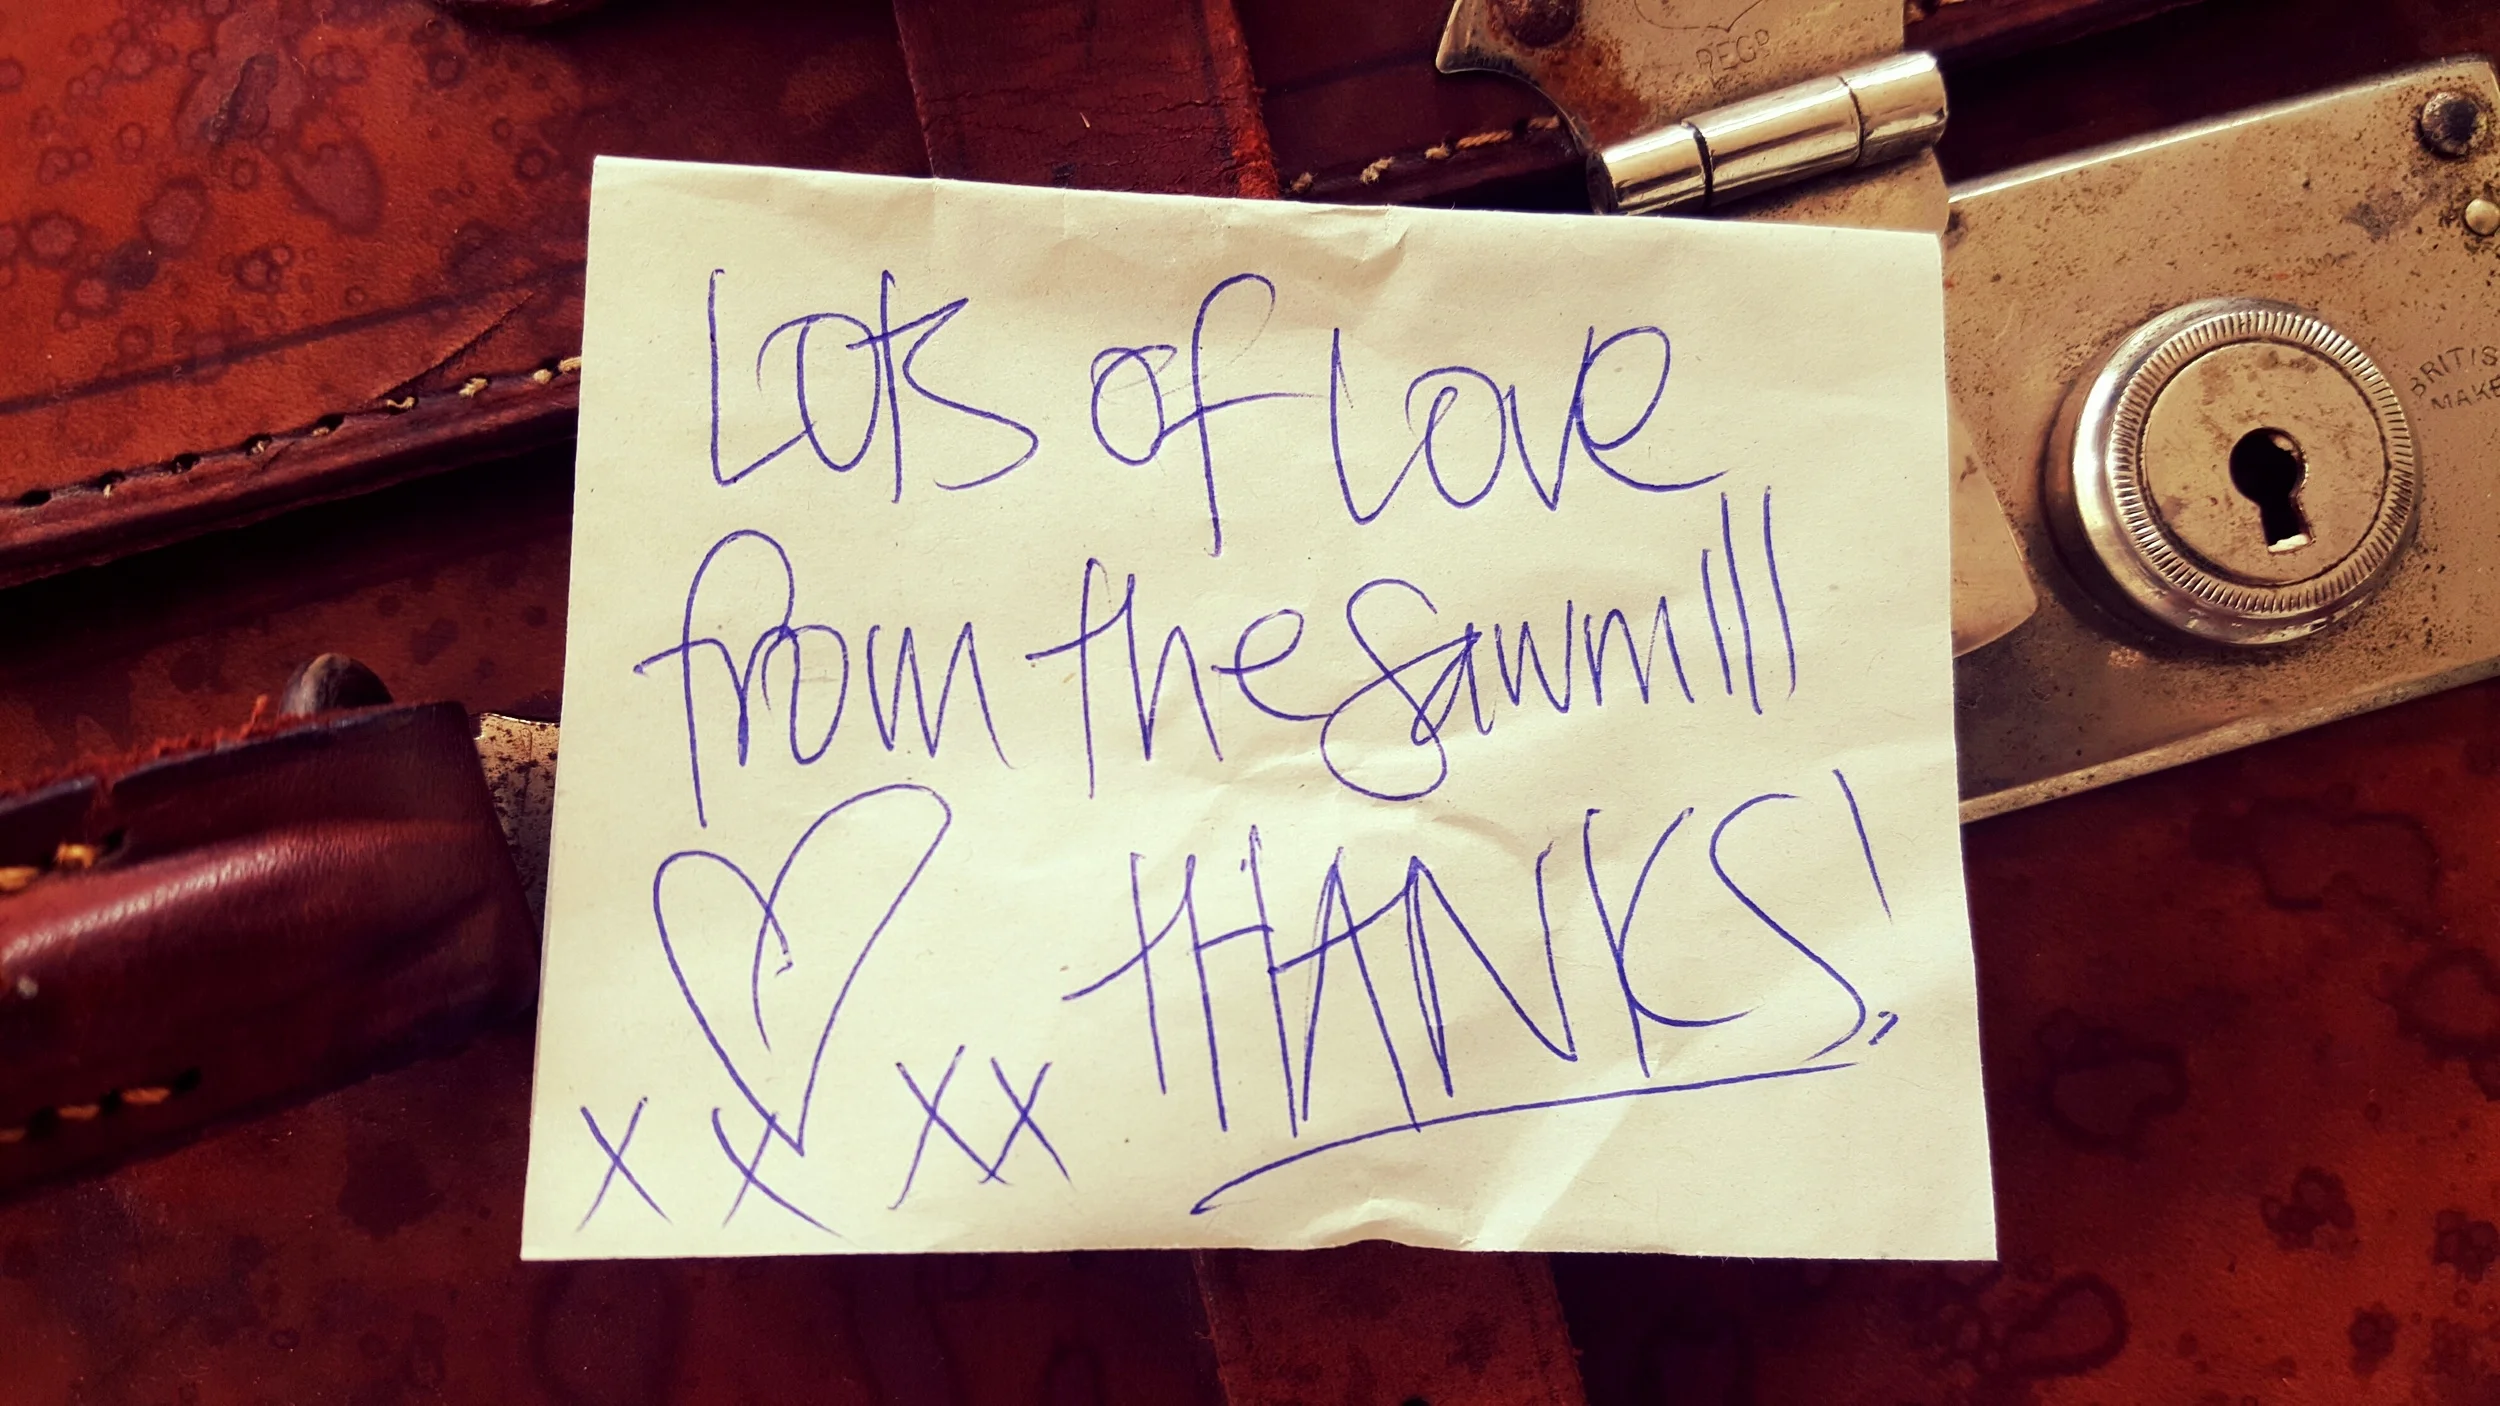 REGD
BRITIS
MAKE
Lots of love
from the Sawmill
THANKS!
x x x x